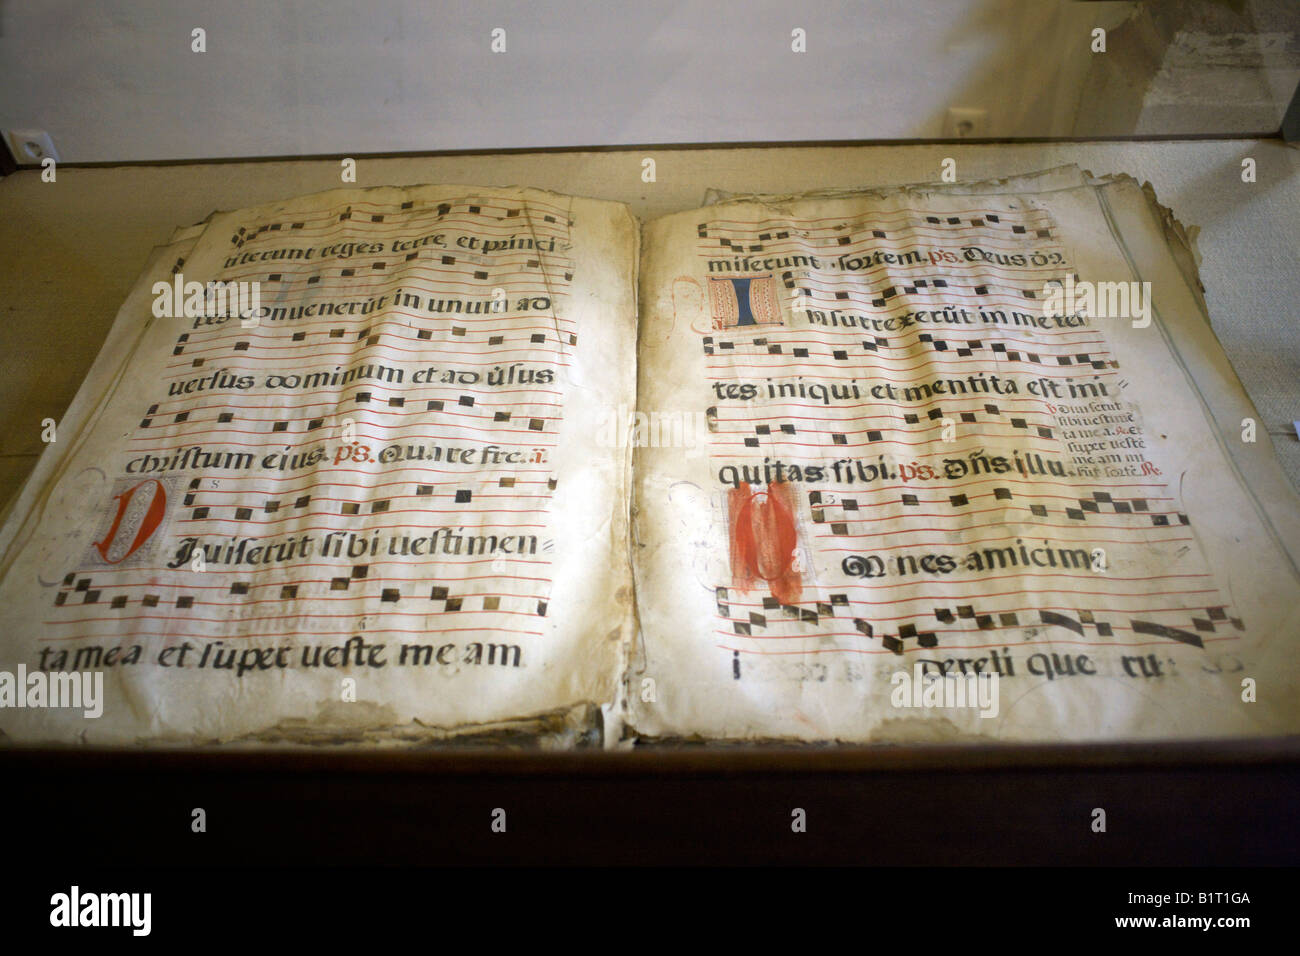 titerunt reges terre, et princi=
pes convenerũt in unum ad
versus dominum et ad ũsus
christum eius. ps. Quare fre. i.
Diviserũt sibi vestimen=
ta mea et super veste me am
miserunt sortem. ps. Deus
Insurrexerũt in me tes
tes iniqui et mentita est ini=
quitas sibi. ps. Dñs illu.
Diviserut
sibi vestime
ta mea. Et
super veste
me am mi
sortẽ.
Omnes amici me
i dereli que rũ
alamy
Image ID: B1T1GA
www.alamy.com